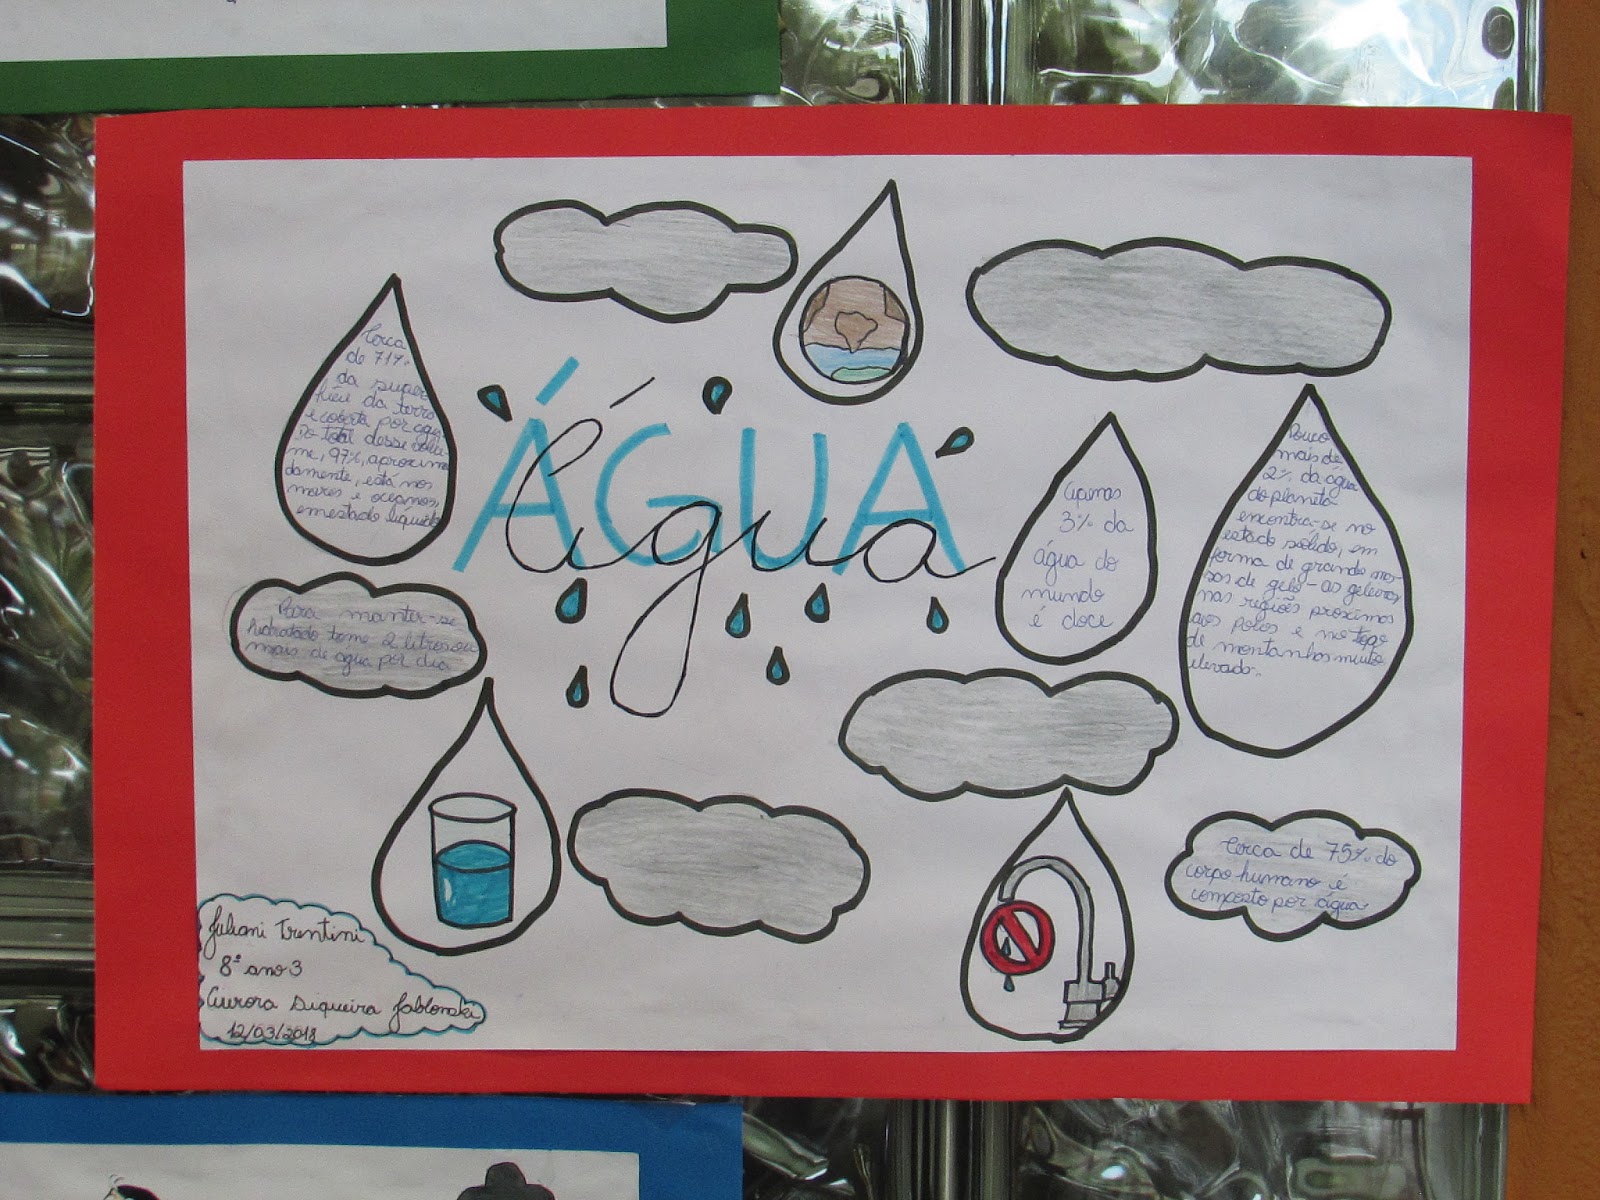 ÁGUA
água
Cerca
de 71%
da super
fície da terra
é coberta por água
Do total desse volu-
me, 97%, aproxima
damente, está nos
mares e oceanos,
em estado líquido
Apenas
3% da
água do
mundo
é doce
Pouco
mais de
2% da água
do planeta
encontra-se no
estado sólido, em
forma de grande mas-
sas de gelo - as geleiras,
nas regiões proximas
aos polos e no topo
de montanhas muito
elevado.
Para manter-se
hidratado tome 2 litros ou
mais de água por dia
Cerca de 75% do
corpo humano é
composto por água
Juliani Trentini
8º ano 3
Aurora Siqueira Jablonski
12/03/2018